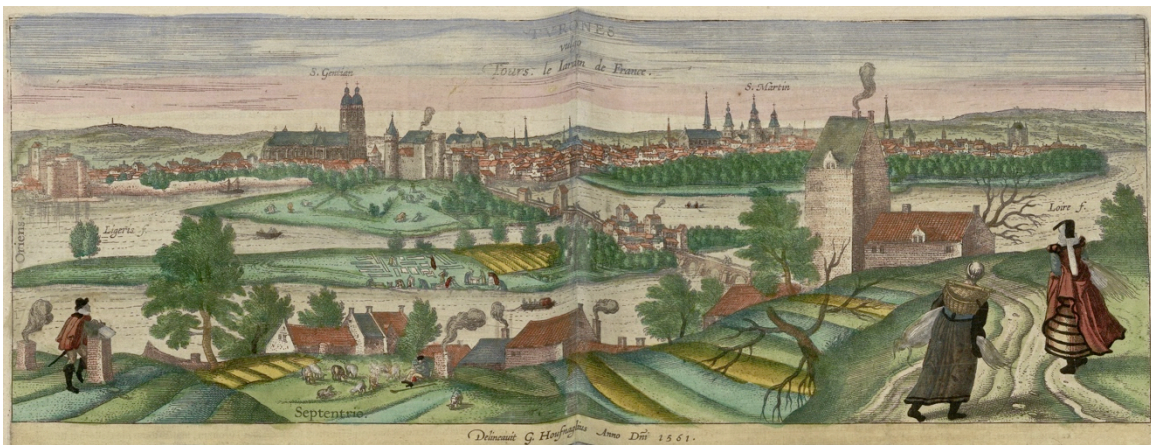 TVRONES
vulgo
Tours. le Iardin de France.
S. Gratien
S. Martin
Oriens
Ligeris f.
Loire f.
Septentrio.
Delineauit G. Houfnaglius Anno Dñi 1561.